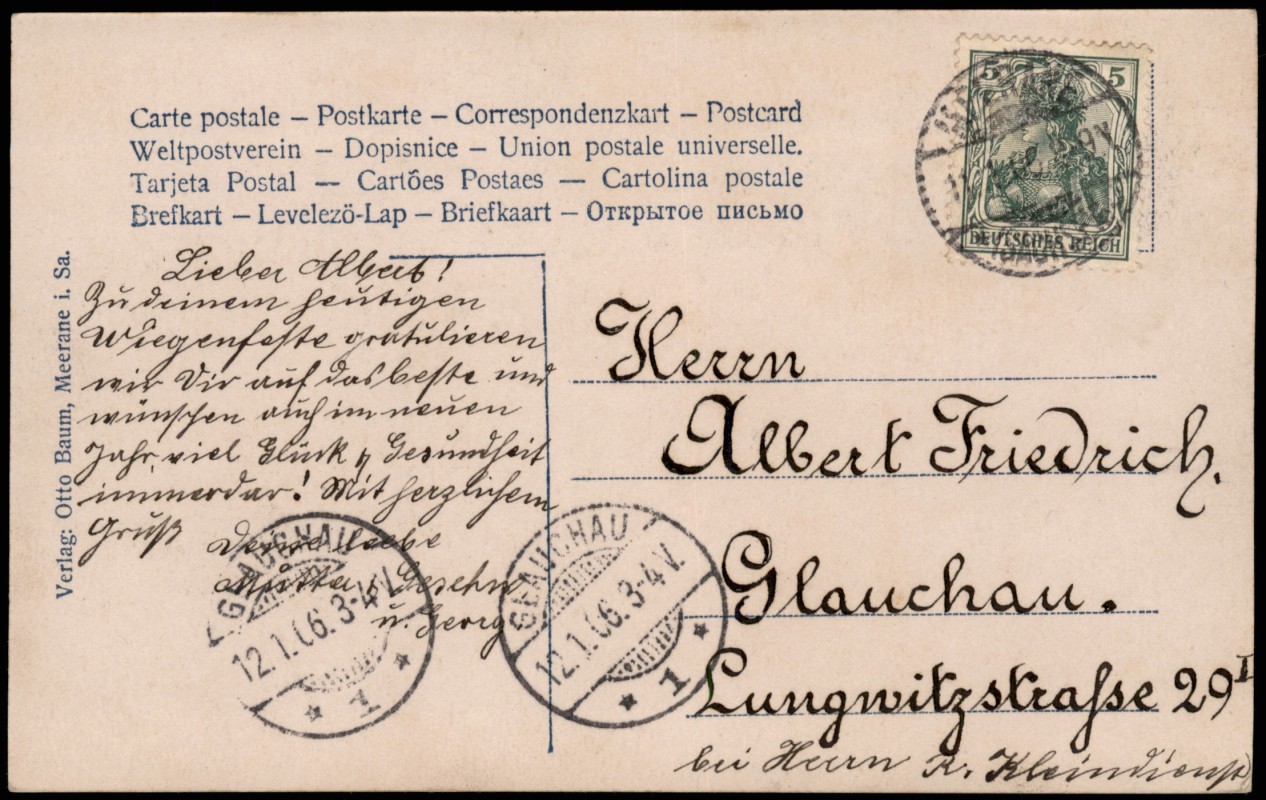 Carte postale – Postkarte – Correspondenzkart – Postcard
Weltpostverein – Dopisnice – Union postale universelle.
Tarjeta Postal — Cartões Postaes — Cartolina postale
Brefkart – Levelezö-Lap – Briefkaart – Открытое письмо
5 5
DEUTSCHES REICH
Verlag: Otto Baum, Meerane i. Sa.
Lieber Albert!
Zu deinem heutigen
Wiegenfeste gratulieren
wir Dir auf das beste und
wünschen auch im neuen
Jahr, viel Glück & Gesundheit
immerdar! Mit herzlichem
Gruß
Deine liebe
Mutter
u. Georg
GLAUCHAU
12.1.06. 3-4 V.
* 1 *
GLAUCHAU
12.1.06. 3-4 V.
* 1 *
Herrn
Albert Friedrich.
Glauchau.
Lungwitzstraſse 29 I
bei Herrn R. Kleindienst